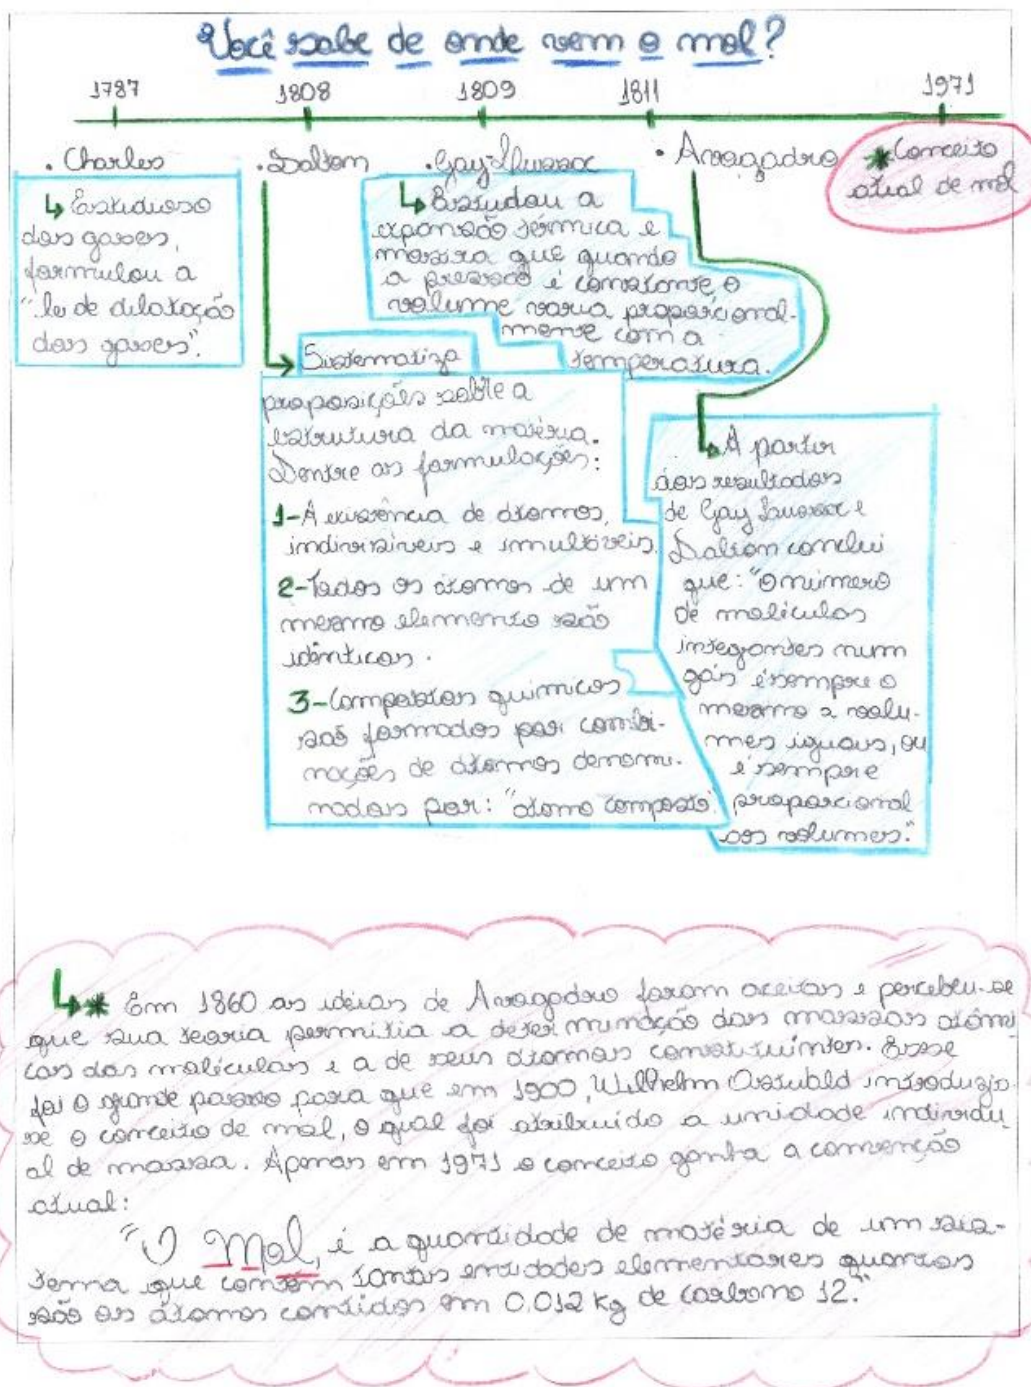 Você sabe de onde vem o mol?
1787
1808
1809
1811
1971
. Charles
↳ Estudioso
dos gases,
formulou a
"lei de dilatação
dos gases".
. Dalton
Sistematiza
proposições sobre a
estrutura da matéria.
Dentre as formulações:
1-A existência de átomos,
indivisíveis e imutáveis.
2-Todos os átomos de um
mesmo elemento são
idênticos.
3-Compostos químicos
são formados por combi-
nações de átomos denomi-
nados por: "átomo composto".
. Gay-Lussac
↳ Estudou a
expansão térmica e
mostra que quando
a pressão é constante, o
volume varia proporcional-
mente com a
temperatura.
. Avogadro
A partir
dos resultados
de Gay Lussac e
Dalton conclui
que: "O número
de moléculas
integantes num
gás é sempre o
mesmo a volu-
mes iguais, ou
é sempre
proporcional
aos volumes."
* Conceito
atual de mol
↳* Em 1860 as idéias de Avogadro foram aceitas e percebeu-se
que sua teoria permitia a determinação das massas atômi
cas das moléculas e a de seus átomos constituintes. Esse
foi o grande passo para que em 1900, Wilhelm Ostwald introduzis
se o conceito de mol, o qual foi atribuído a unidade individu
al de massa. Apenas em 1971 o conceito ganha a convenção
atual:
"O Mol, é a quantidade de matéria de um sis-
tema que contém tantas entidades elementares quantos
são os átomos contidos em 0,012 kg de carbono 12."